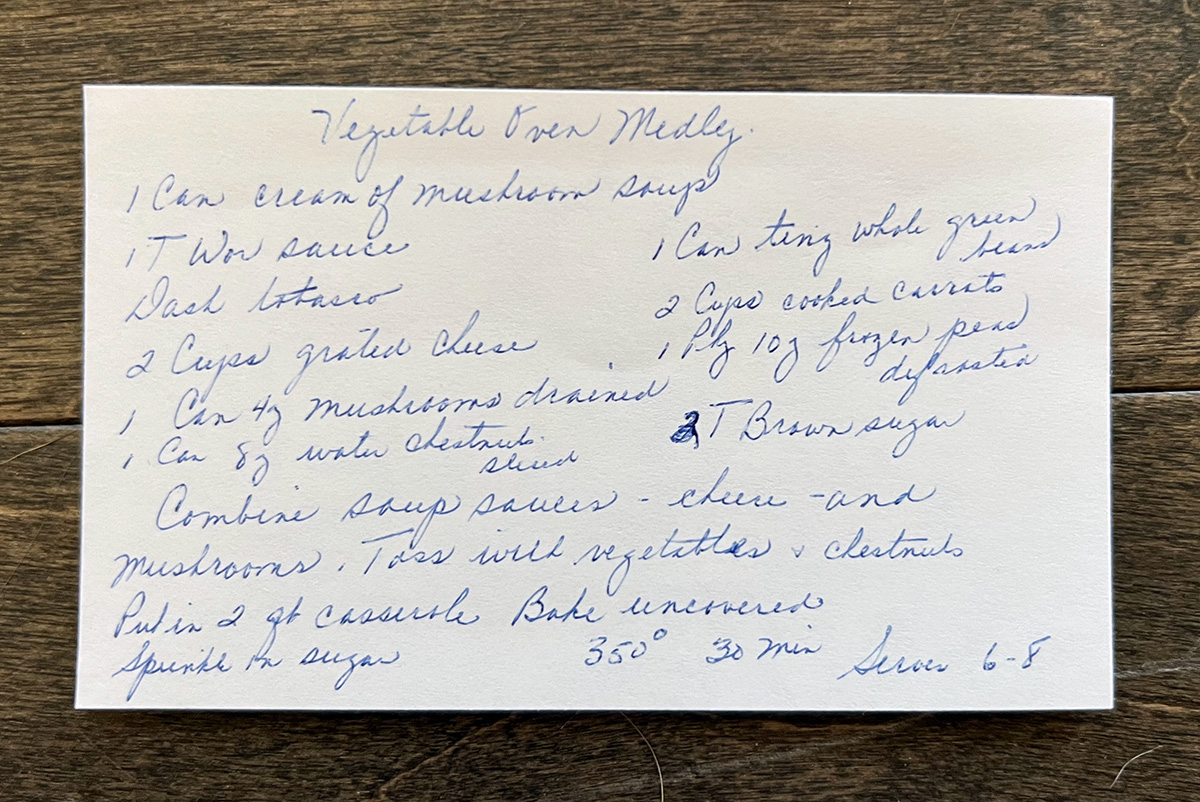 Vegetable Oven Medley.
1 Can cream of mushroom soup
1 T Wor sauce
Dash tobasco
2 Cups grated cheese
1 Can 4z mushrooms drained
1 Can 8z water chestnuts
sliced
1 Can tiny whole green
beans
2 Cups cooked carrots
1 Pkg 10z frozen peas
defrosted
2 T Brown sugar
Combine soup sauces - cheese - and
mushrooms. Toss with vegetables & chestnuts
Put in 2 qt casserole Bake uncovered
Sprinkle on sugar 350° 30 min Serves 6-8